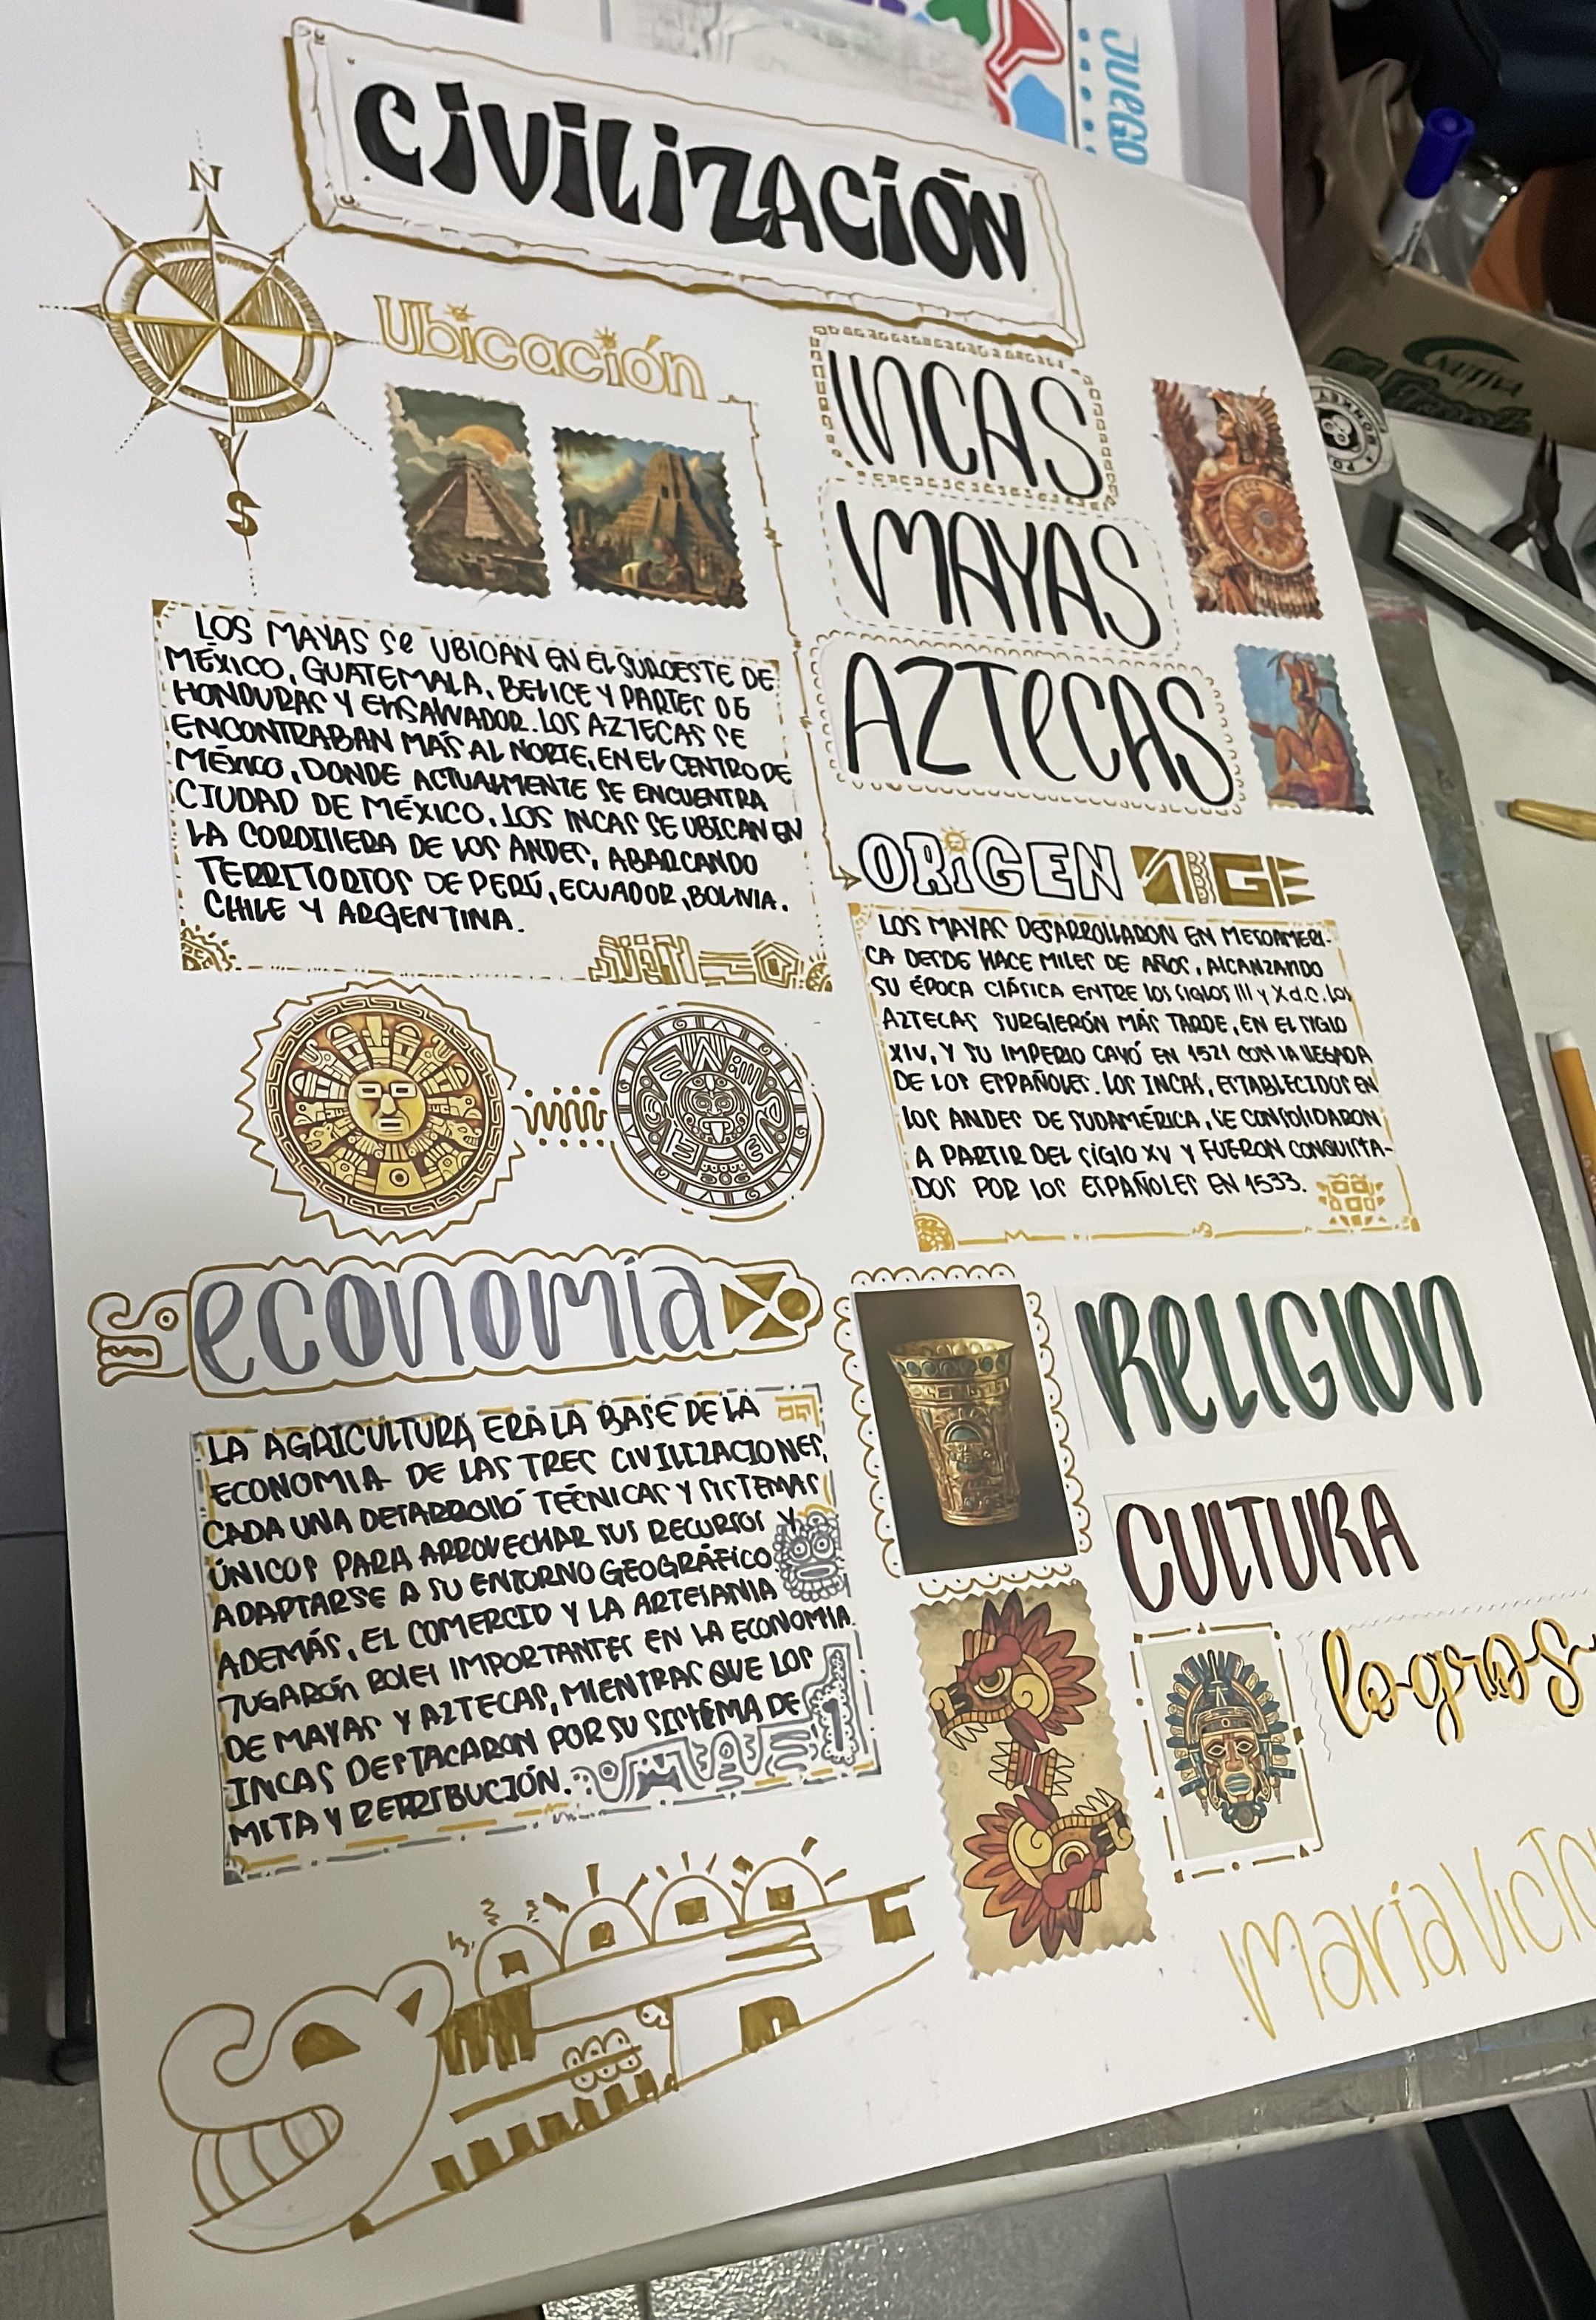 CIVILIZACIÓN
JUEGO
N
S
Ubicación
LOS MAYAS SE UBICAN EN EL SUROESTE DE
MÉXICO, GUATEMALA, BELICE Y PARTES DE
HONDURAS Y EL SALVADOR. LOS AZTECAS SE
ENCONTRABAN MÁS AL NORTE, EN EL CENTRO DE
MÉXICO, DONDE ACTUALMENTE SE ENCUENTRA
CIUDAD DE MÉXICO. LOS INCAS SE UBICAN EN
LA CORDILLERA DE LOS ANDES, ABARCANDO
TERRITORIOS DE PERÚ, ECUADOR, BOLIVIA.
CHILE Y ARGENTINA.
INCAS
MAYAS
AZTECAS
ORIGEN
LOS MAYAS DESARROLLARON EN MESOAMERI-
CA DESDE HACE MILES DE AÑOS, ALCANZANDO
SU ÉPOCA CLÁSICA ENTRE LOS SIGLOS III Y X d.C. LOS
AZTECAS SURGIERÓN MÁS TARDE, EN EL SIGLO
XIV, Y SU IMPERIO CAYÓ EN 1521 CON LA LLEGADA
DE LOS ESPAÑOLES. LOS INCAS, ESTABLECIDOS EN
LOS ANDES DE SUDAMÉRICA, SE CONSOLIDARON
A PARTIR DEL SIGLO XV Y FUERON CONQUISTA-
DOS POR LOS ESPAÑOLES EN 1533.
economía
LA AGRICULTURA ERA LA BASE DE LA
ECONOMIA DE LAS TRES CIVILIZACIONES,
CADA UNA DESARROLLÓ TÉCNICAS Y SISTEMAS
ÚNICOS PARA APROVECHAR SUS RECURSOS Y
ADAPTARSE A SU ENTORNO GEOGRÁFICO
ADEMÁS, EL COMERCIO Y LA ARTESANIA
JUGARÓN ROLES IMPORTANTES EN LA ECONOMIA
DE MAYAS Y AZTECAS, MIENTRAS QUE LOS
INCAS DESTACARON POR SU SISTEMA DE
MITA Y RETRIBUCIÓN.
RELIGION
CULTURA
logros
María Victo
NUTIVA